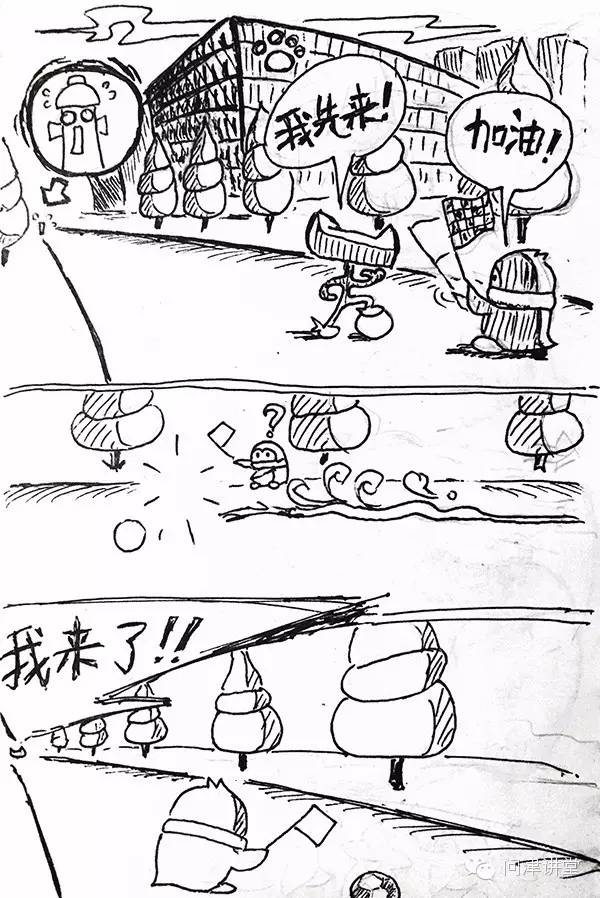 我先来!
加油!!
?
我来了!!
问津讲堂